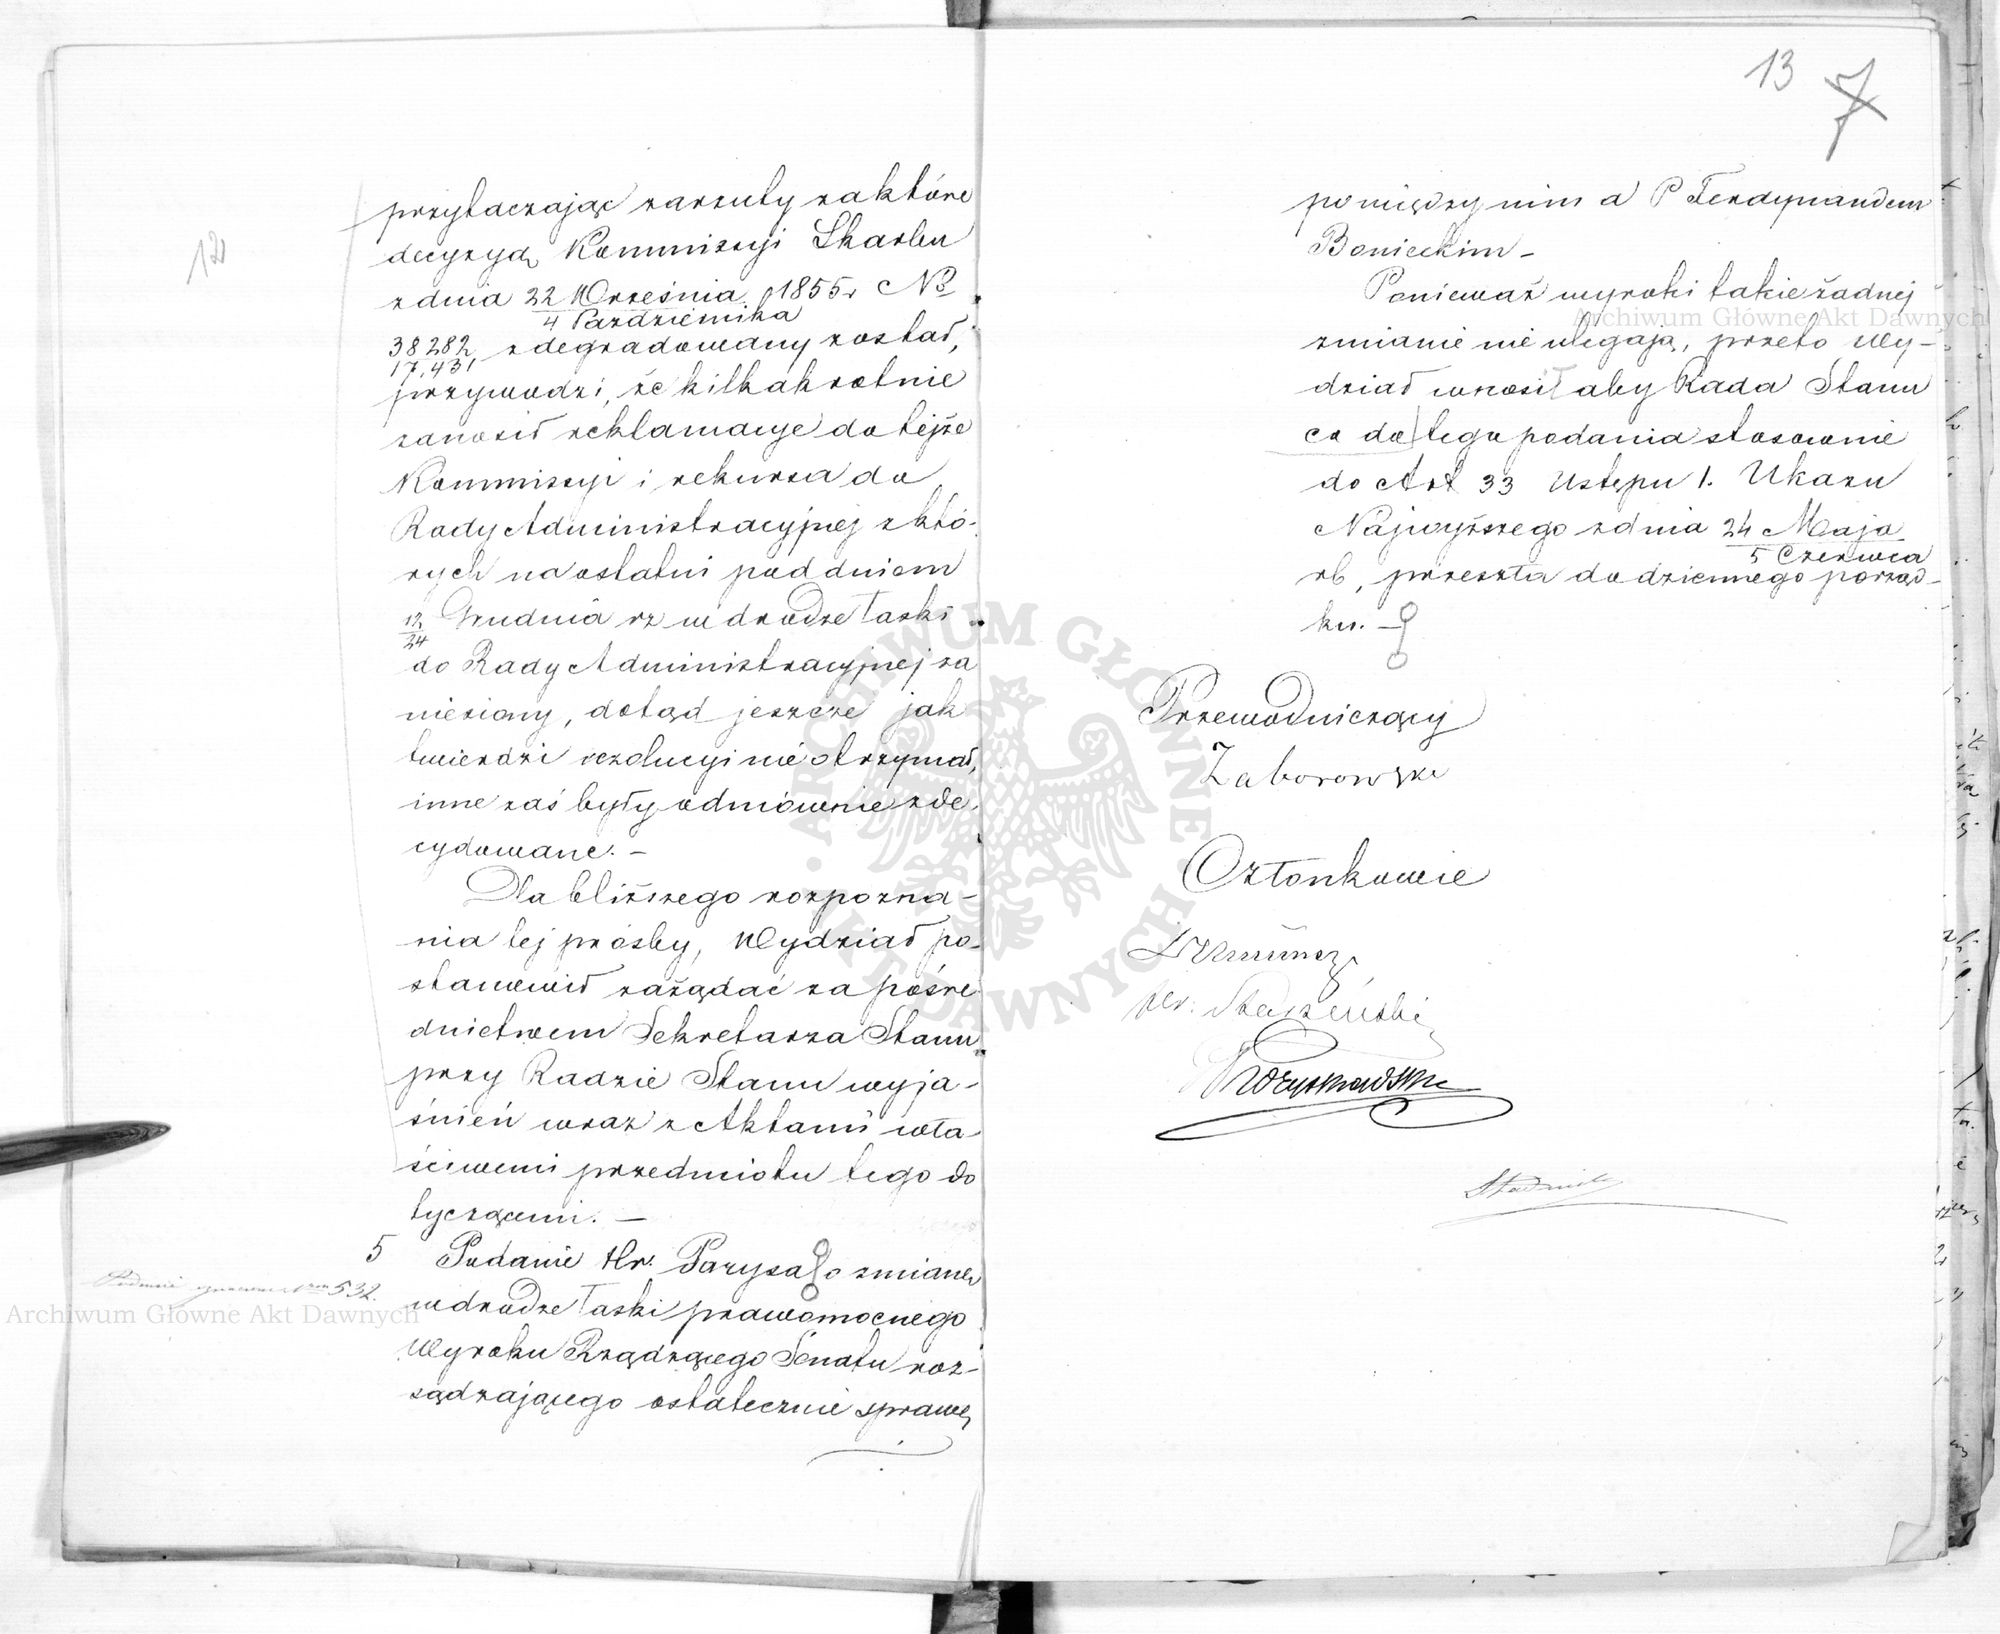 12
przytaczając zarzuty za które
decyzyą Kommissyi Skarbu
z dnia 22 Września 1855 r № 
4 Października
38282 zdegradowany został,
17,431
przywodzi, że kilkakrotnie
zanosił reklamacye do tejże
Kommissyi i rekursa do
Rady Administracyjnej z któ-
rych na ostatni pod dniem
12/24 Grudnia rz w drodze łaski
do Rady Administracyjnej za
niesiony, dotąd jeszcze jak
twierdzi rezolucyi nie otrzymał,
inne zaś były odmównie zde
cydowane. –
Dla bliższego rozpozna-
nia tej prośby, Wydział po-
stanowił zażądać za pośre
dnictwem Sekretarza Stanu
przy Radzie Stanu wyja-
śnień wraz z Aktami wła
ściwemi przedmiotu tego do
tyczącemi. –
5 Podanie Hr. Parysa o zmianę
532.
w drodze łaski prawomocnego
Wyroku Rządzącego Senatu roz-
sądzającego ostatecznie sprawę
13 7
pomiędzy nim a P Ferdynandem
Bonieckim –
Ponieważ wyroki takie żadnej
zmianie nie ulegają, przeto Wy-
dział wnosi aby Rada Stanu
co do tego podania stosownie
do Art 33 Ustępu 1. Ukazu
Najwyższego z dnia 24 Maja
5 Czerwca
rb, przeszła do dziennego porząd-
ku. –
Przewodniczący
Zaborowski
Członkowie
Archiwum Główne Akt Dawnych
Archiwum Główne Akt Dawnych
ARCHIWUM GŁÓWNE AKT DAWNYCH